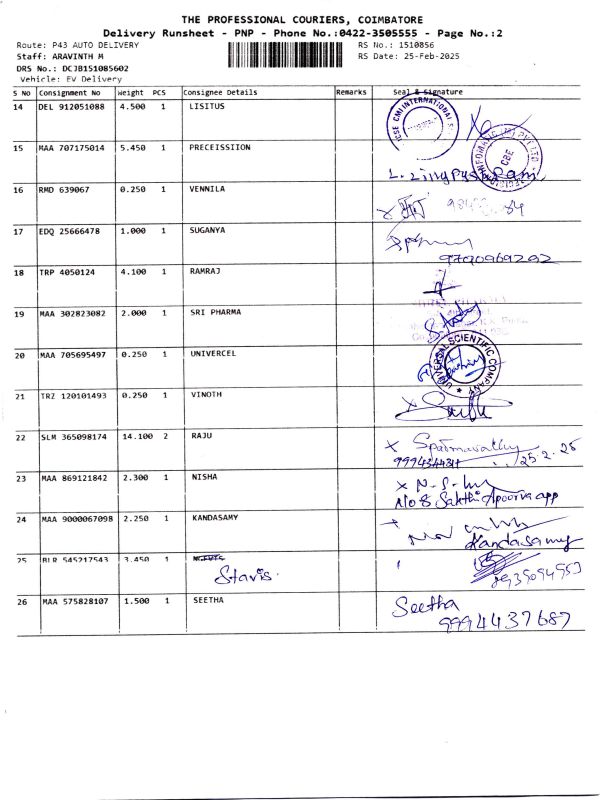 THE PROFESSIONAL COURIERS, COIMBATORE
Delivery Runsheet - PNP - Phone No.:0422-3505555 - Page No.:2
Route: P43 AUTO DELIVERY
Staff: ARAVINTH M
DRS No.: DCJB151085602
Vehicle: EV Delivery
RS No.: 1510856
RS Date: 25-Feb-2025
S No Consignment No Weight PCS Consignee Details Remarks Seal & Signature
14 DEL 912051088 4.500 1 LISITUS
15 MAA 707175014 5.450 1 PRECEISSIION
16 RMD 639067 0.250 1 VENNILA
17 EDQ 25666478 1.000 1 SUGANYA
9790969292
18 TRP 4050124 4.100 1 RAMRAJ
19 MAA 302823082 2.000 1 SRI PHARMA
20 MAA 705695497 0.250 1 UNIVERCEL
UNIVERSAL SCIENTIFIC COMPANY
21 TRZ 120101493 0.250 1 VINOTH
22 SLM 365098174 14.100 2 RAJU
Spatmavathy
25-2-25
23 MAA 869121842 2.300 1 NISHA
No 8 Sakthi Apoorva app
24 MAA 9000067098 2.250 1 KANDASAMY
Kandasamy
25 BLR 545217543 3.450 1
Stavis.
26 MAA 575828107 1.500 1 SEETHA
Seetha
9994437687